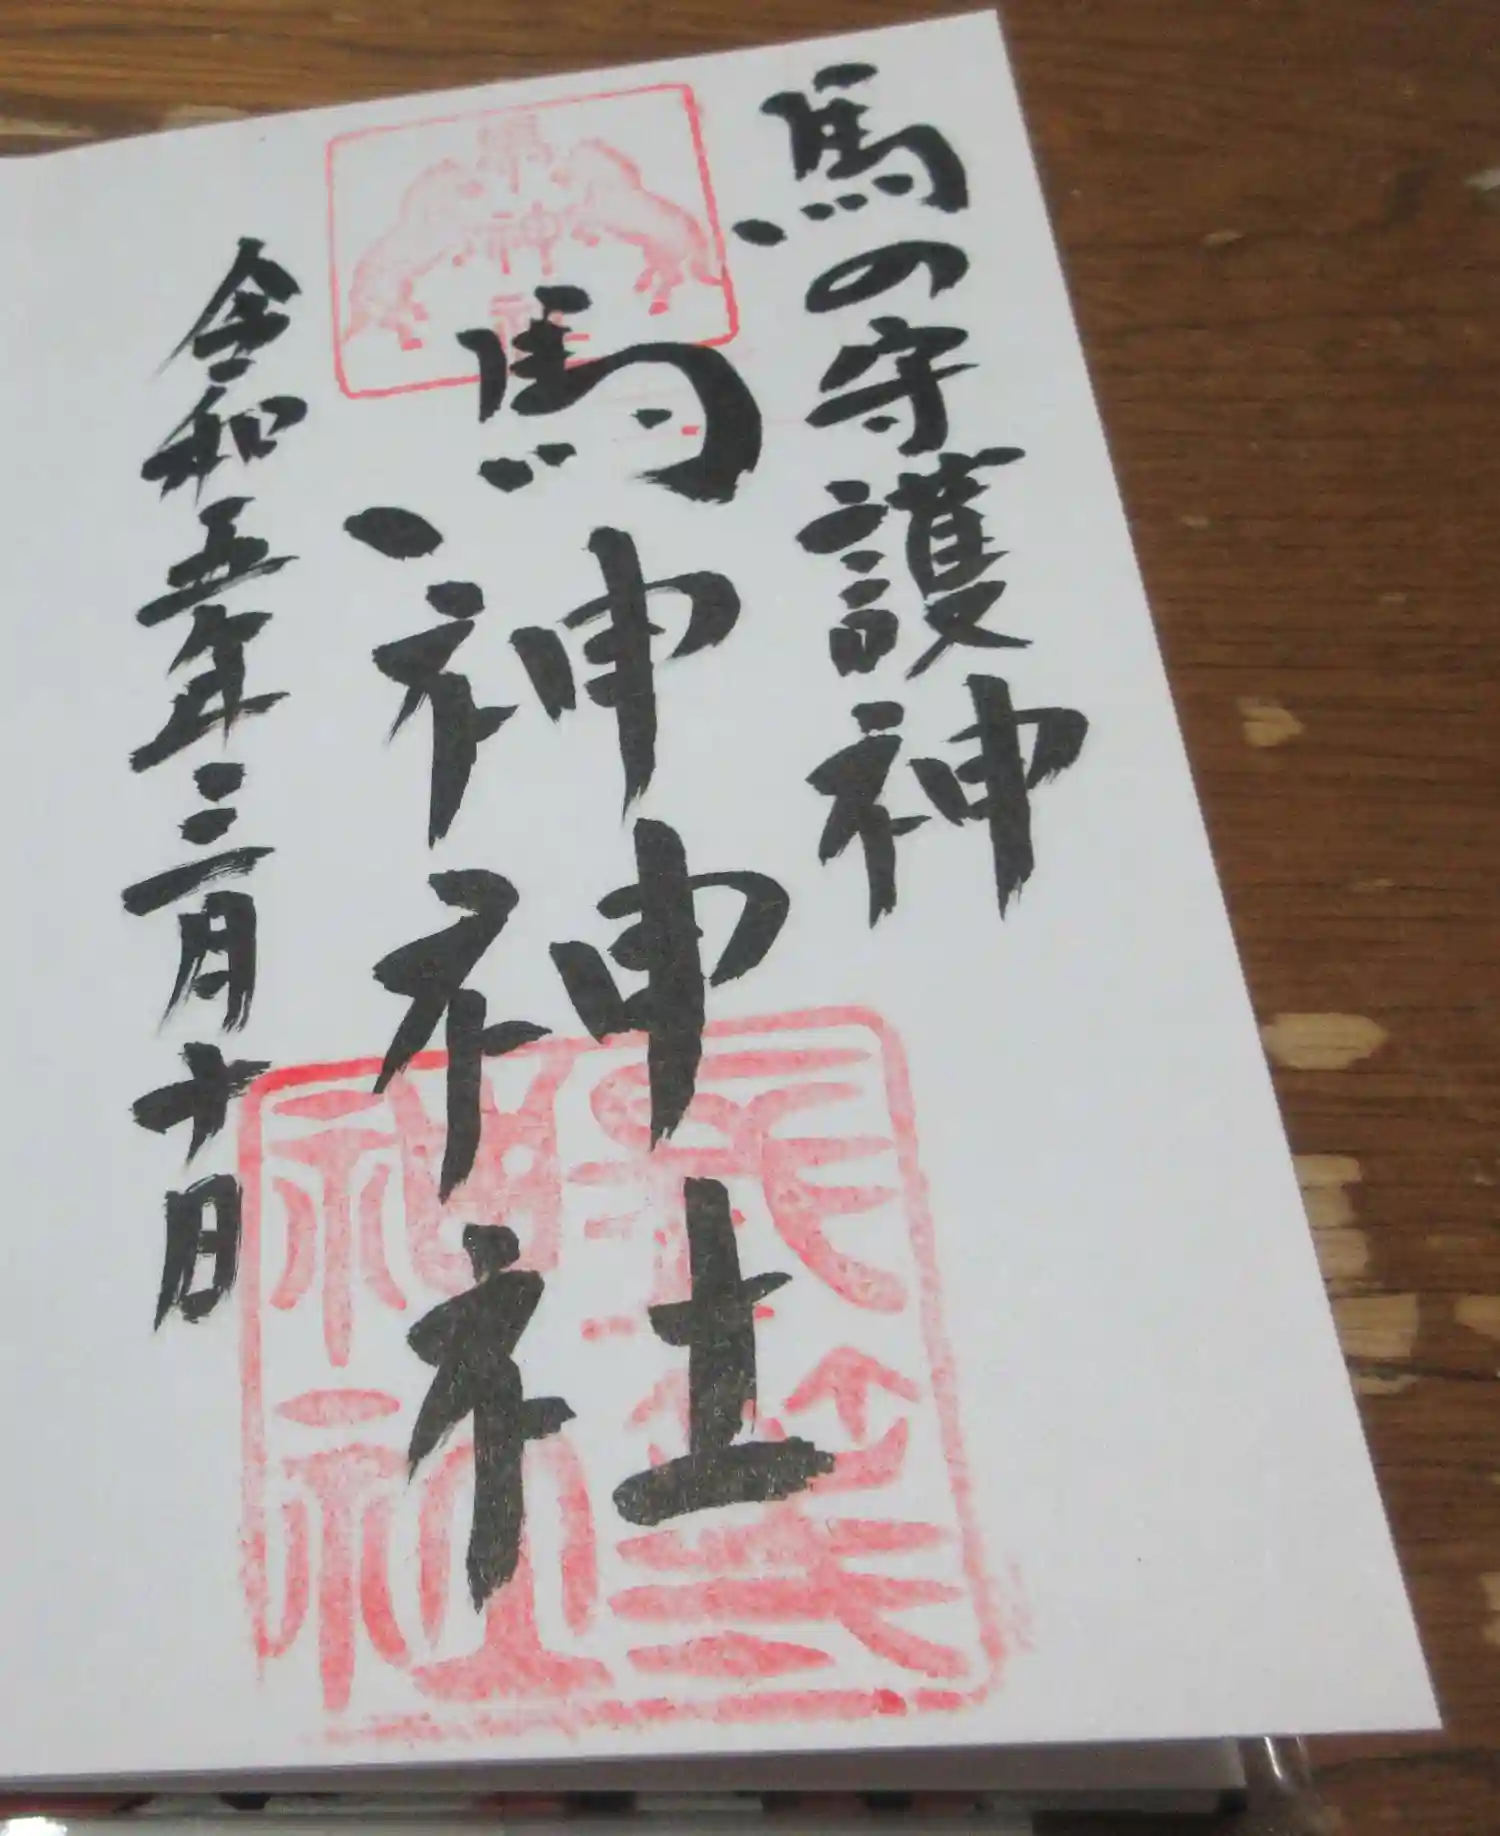 馬の守護神
馬神神社
令和五年三月十日
神社